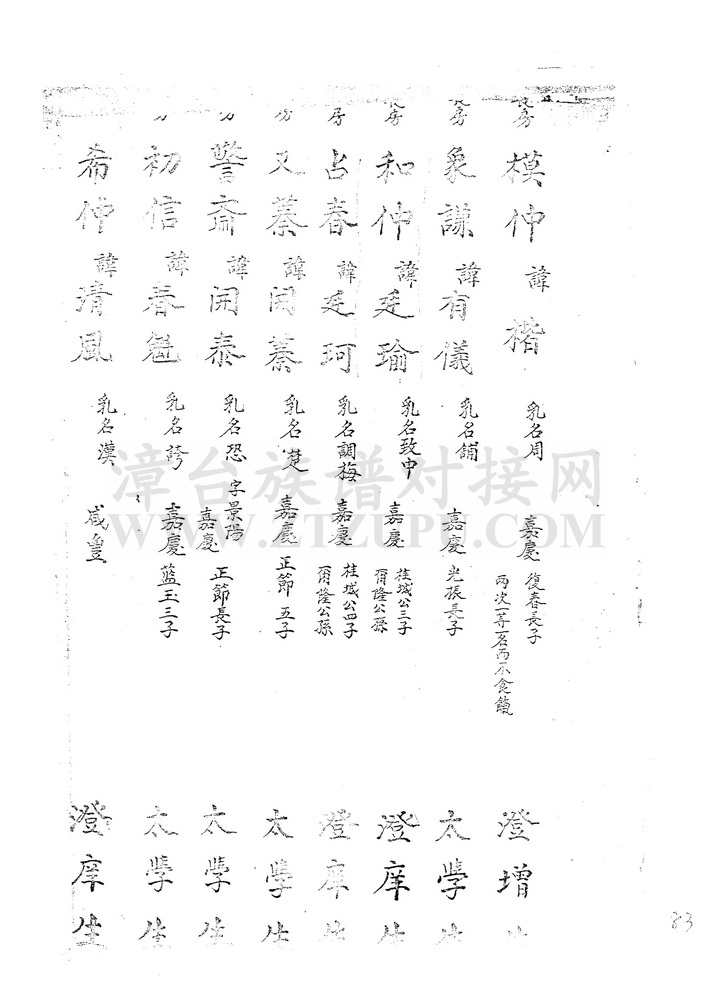 長房 模仲 諱 楷 乳名周 嘉慶 復春長子 兩次一等一名而不食餼 澄增生
長房 象謙 諱 有儀 乳名舖 嘉慶 光振長子 太學生
長房 和仲 諱 廷瑜 乳名致中 嘉慶 桂城公三子 爾隆公孫 澄庠生
房 占春 諱 廷珂 乳名調梅 嘉慶 桂城公四子 爾隆公孫 澄庠生
又蓁 諱 開蓁 乳名楚 嘉慶 正節五子 太學生
警齋 諱 開泰 乳名恐 字景陽 嘉慶 正節長子 太學生
初信 諱 春魁 乳名誇 嘉慶 藍玉三子 太學生
希仲 諱 清風 乳名漢 咸豐 澄庠生
漳台族谱对接网
WWW.ZTZUPU.COM
83